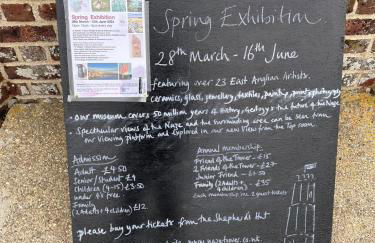 Spring Exhibition
28th March - 16th June
Spring Exhibition.
28th March - 16th June
featuring over 23 East Anglian Artists.
ceramics, glass, jewellery, textiles, painting, prints, photography
• Our museum covers 50 million years of History, Geology & the future of the Naze
• Spectacular views of the Naze and the surrounding area can be seen from
our viewing platform and explored in our New View from the Top room
Admission
Adult £4.50
Senior/Student £4
Children (4-15) £3.50
under 4's free
Family
(2 Adults + 4 children) £12
Annual membership
Friend of the Tower - £15
2 Friends of the Tower - £27
Junior Friend - £
Family (2 Adults +
4 children) - £35
Each membership inc 2 guest tickets
please buy your tickets from the Shepherds Hut
www.nazetower.co.uk